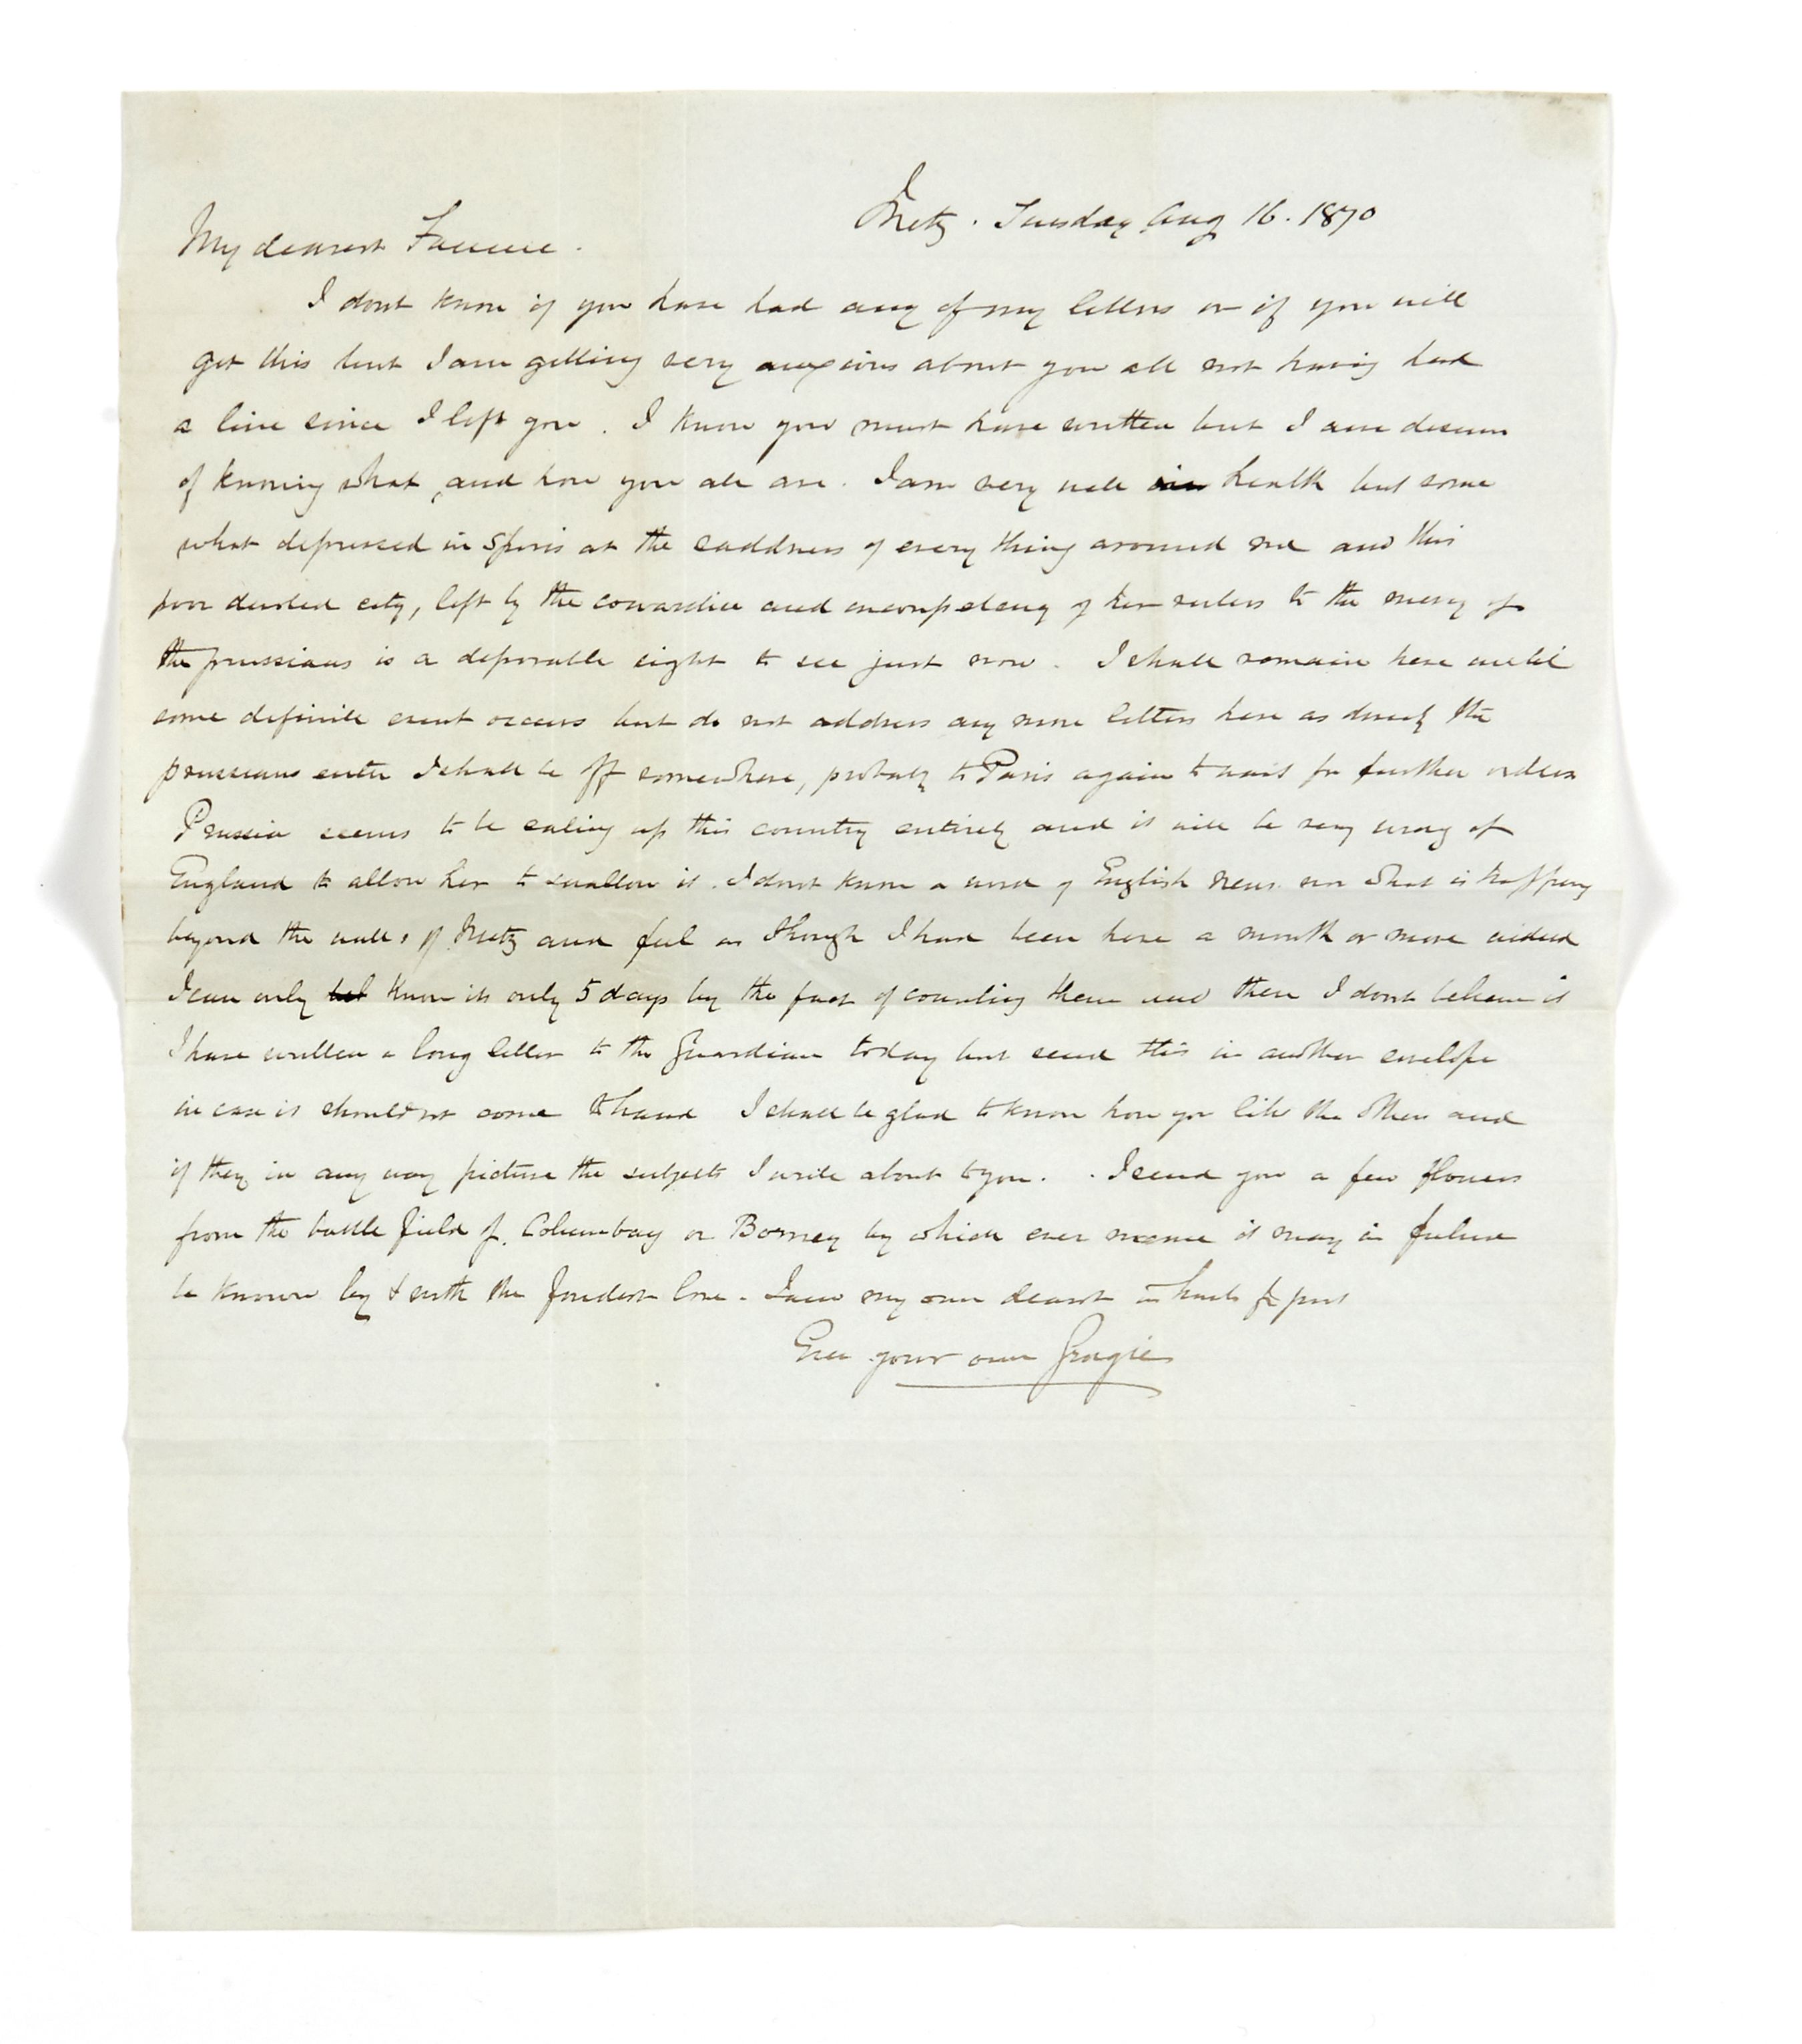 Metz. Tuesday Aug 16. 1870
My dearest Fannie.
I dont know if you have had any of my letters or if you will
get this but I am getting very anxious about you all not having had
a line since I left you. I know you must have written but I am
of knowing what, and how you all are. I am very well in health but some
what depressed in at the saddness of every thing around me and this
poor city, left by the cowardice and of her rulers to the mercy of
the prussians is a sight to see just now. I shall remain here until
some definite event occurs but do not address any more letters here as directly the
prussians enter I shall be off somewhere, probably to Paris again to wait for further orders
Prussia seems to be eating up this country entirely and it will be very wrong of
England to allow her to swallow it. I dont know a word of English news nor what is
beyond the walls of Metz and feel as though I had been here a month or more indeed
I can only know its only 5 days by the fact of counting them and then I dont believe it
I have written a long letter to the Guardian today but send this in another envelope
in case it should not come to hand I shall be glad to know how you like the others and
if they in any way picture the subjects I write about to you. . I send you a few flowers
from the battle field of or by which ever name it may in future
be known by & with the fondest love. I am my own dearest
Ever your own